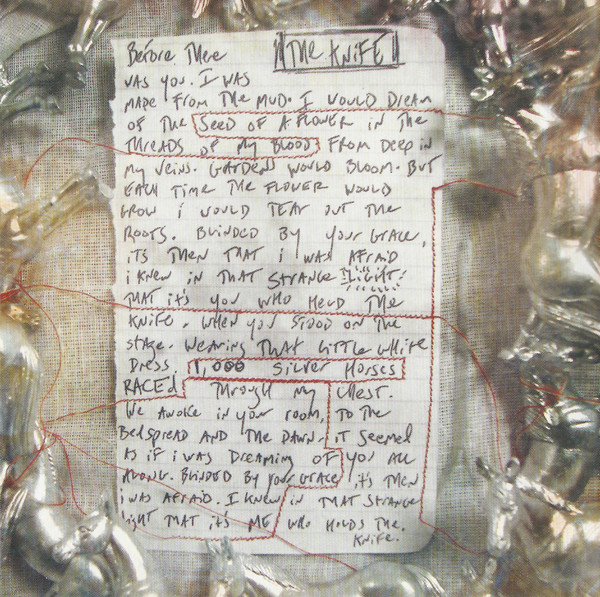 "THE KNIFE"
Before there
was you. I was
made from the mud. I would dream
of the seed of a flower in the
threads of my blood. From deep in
my veins. Gardens would bloom. But
each time the flower would
grow i would tear out the
roots. Blinded by your grace,
its then that i was afraid
i knew in that strange light!
that it's you who held the
knife. When you stood on the
stage. Wearing that little white
dress. 1,000 silver horses
raced through my chest.
We awoke in your room, to the
bedspread and the dawn - it seemed
as if i was dreaming of you all
along. Blinded by your grace it's then
i was afraid. I knew in that strange
light that it's me who holds the.
knife.